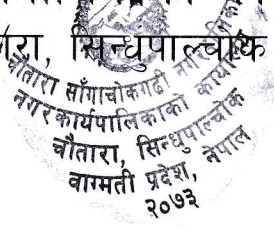 रा, सिन्धुपाल्चोक
चौतारा साँगाचोकगढी नगरपालिका
नगरकार्यपालिकाको कार्यालय
चौतारा, सिन्धुपाल्चोक
वाग्मती प्रदेश, नेपाल
२०७३